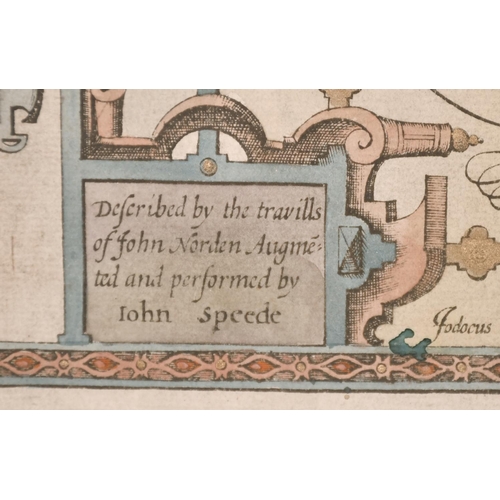 Described by the travills
of John Nōrden Augmē-
ted and performed by
Iohn Speede
Jodocus